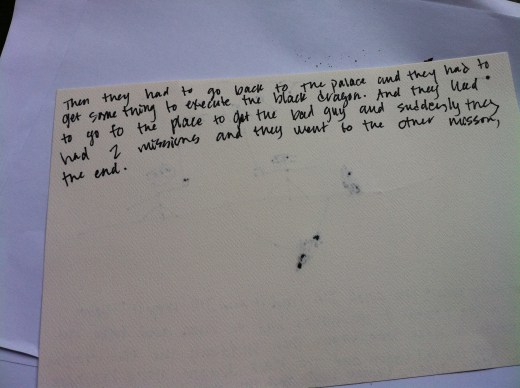 Then they had to go back to the palace and they had to
get some thing to execute the black dragon. And they had
to go to the place to get the bad guy and suddenly they
had 2 missions and they went to the other misson,
the end.